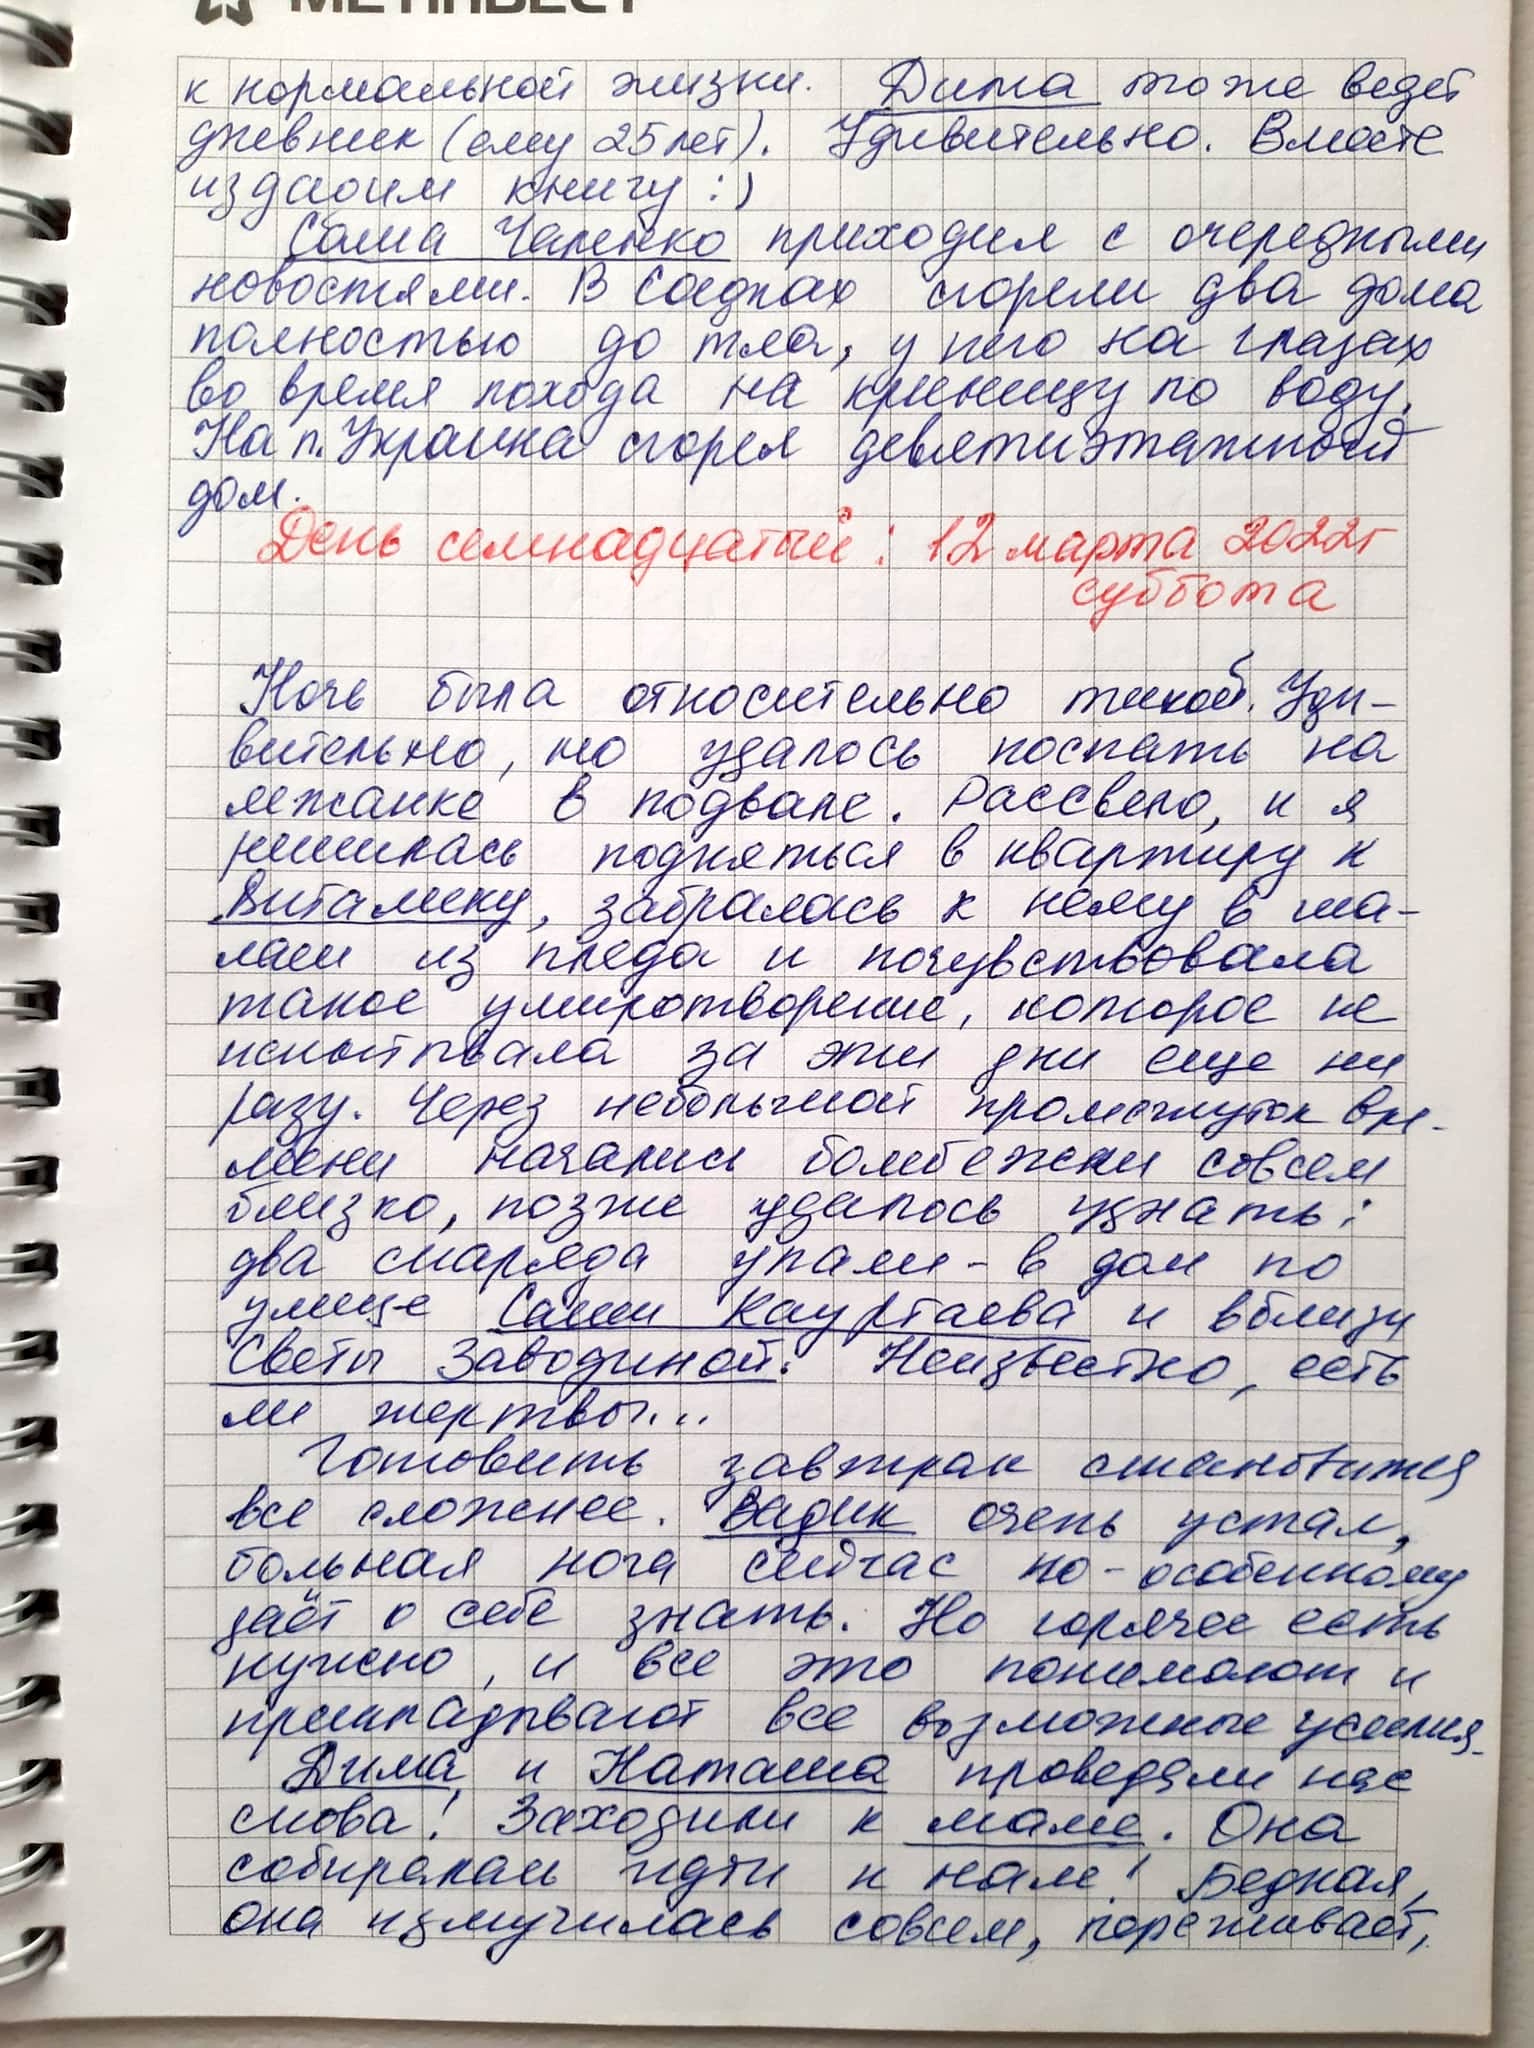 МЕТІНВЕСТ
к нормальной жизни. Дима тоже ведет
дневник (ему 25 лет). Удивительно. Вместе
издадим книгу :)
Саша приходил с очередными
новостями. В Садках сгорели два дома
полностью до тла, у него на глазах
во время похода на криницу по воду.
На п. Украина сгорел девятиэтажный
дом.
День семнадцатый: 12 марта 2022г
суббота
Ночь была относительно тихой. Уди-
вительно, но удалось поспать на
лежанке в подвале. Рассвело, и я
решилась подняться в квартиру к
Виталику, забралась к нему в ша-
лаш из пледа и почувствовала
такое умиротворение, которое не
испытывала за эти дни еще ни
разу. Через небольшой промежуток вре-
мени начались бомбежки совсем
близко, позже удалось узнать:
два снаряда упали - в дом по
улице Саши и вблизи
Светы Заводиной. Неизвестно, есть
ли жертвы...
Готовить завтрак становится
все сложнее. Вадик очень устал,
больная нога сейчас по-особенному
даёт о себе знать. Но горячее есть
нужно, и все это понимают и
прикладывают все возможные усилия.
Дима и Наташа проведали нас
снова! Заходили к маме. Она
собиралась идти к нам! Бедная,
она измучилась совсем, переживает,